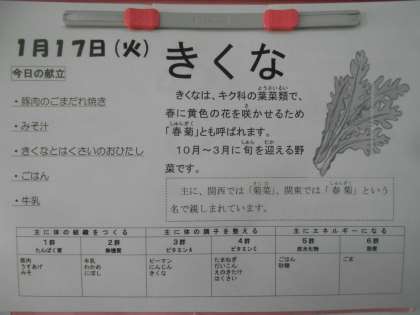 1月17日(火)
きくな
今日の献立
・豚肉のごまだれ焼き
・みそ汁
・きくなとはくさいのおひたし
・ごはん
・牛乳
きくなは、キク科の葉菜類で、
春に黄色の花を咲かせるため
「春菊」とも呼ばれます。
10月～3月に旬を迎える野
菜です。
主に、関西では「菊菜」、関東では「春菊」という
名で親しまれています。
主に体の組織をつくる 主に体の調子を整える 主にエネルギーになる
1群 2群 3群 4群 5群 6群
たんぱく質 無機質 ビタミンA ビタミンC 炭水化物 脂肪
豚肉 牛乳 ピーマン たまねぎ ごはん ごま
うすあげ わかめ にんじん だいこん 砂糖
みそ にぼし きくな えのきたけ
はくさい